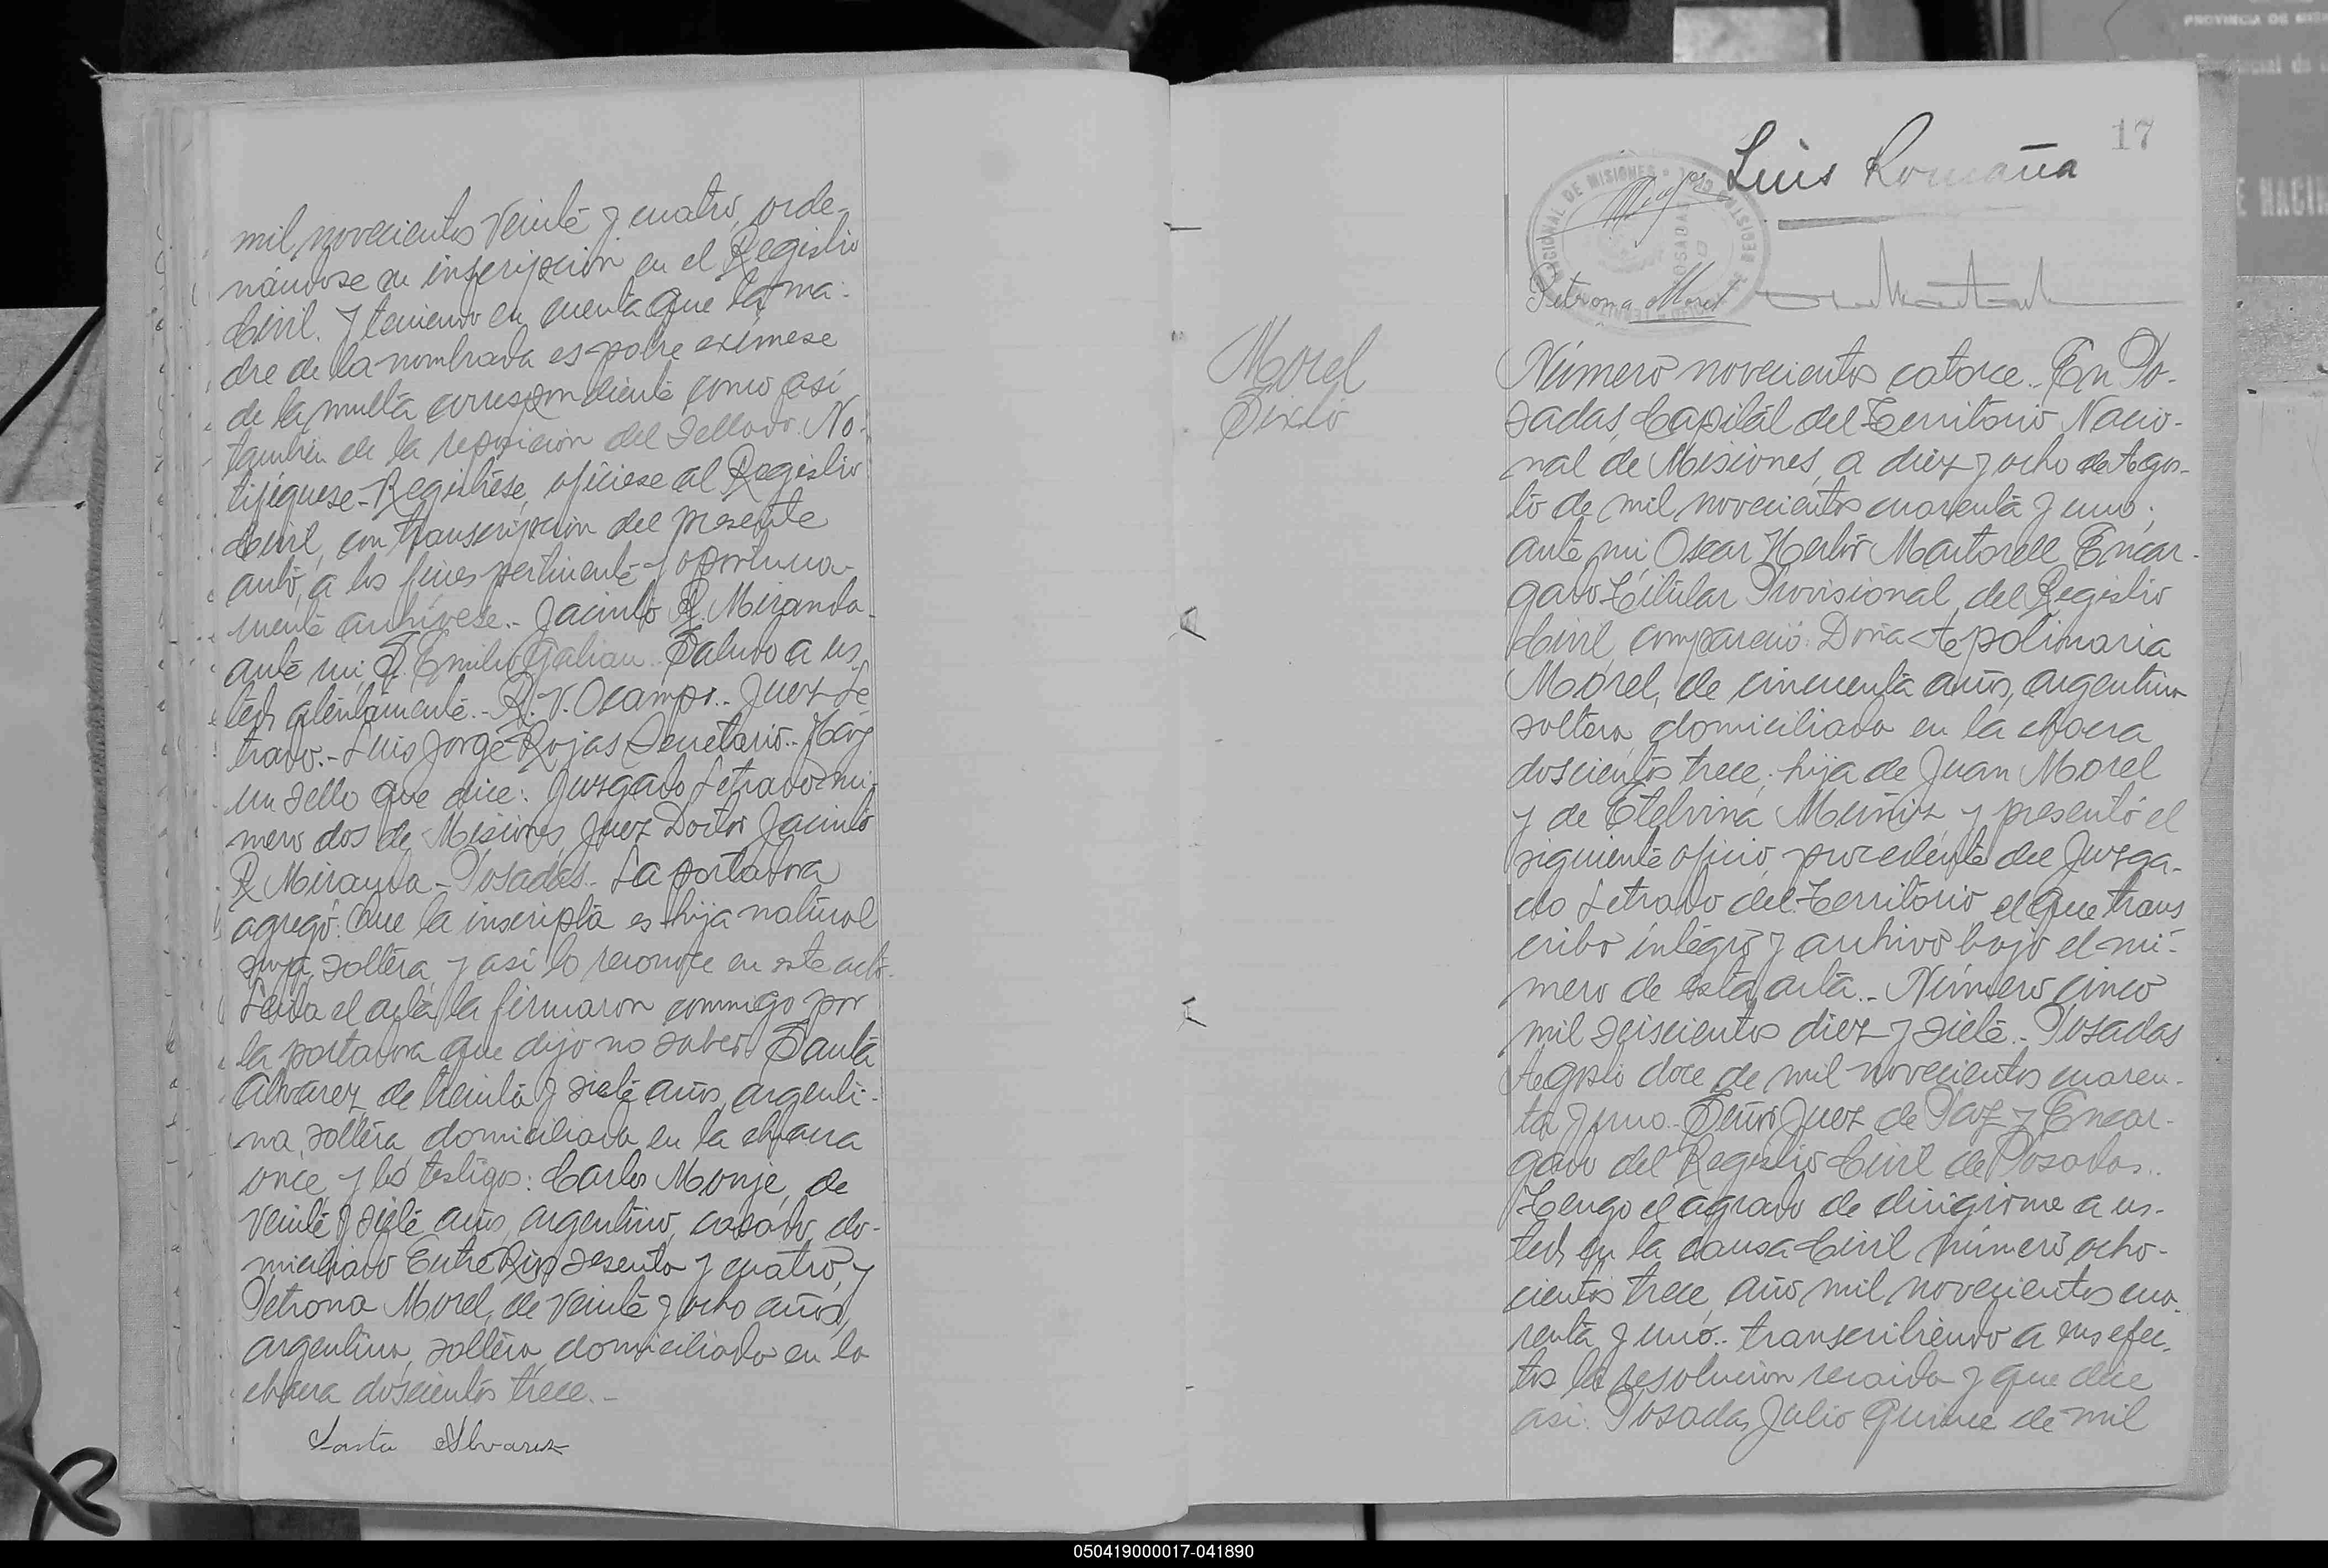 mil novecientos veinte y cuatro, orde-
nándose su inscripción en el Registro
Civil. Y teniendo en cuenta que la ma-
dre de la nombrada es pobre exímese
de la multa correspondiente como así
también de la reposición del sellado. No-
tifíquese - Regístrese, ofíciese al Registro
Civil, con transcripción del presente
auto, a los fines pertinente y oportuna-
mente archívese.- Jacinto R. Miranda-
ante mí: Emilio Galian. Saludo a us
ted atentamente.- R. V. Ocampo.- Juez Le
trado.- Luis Jorge Rojas Secretario.- Hay
un sello que dice: Juzgado Letrado nú-
mero dos de Misiones, Juez Doctor Jacinto
R Miranda - Posadas.- La portadora
agregó: Que la inscripta es hija natural
suya, soltera, y así lo reconoce en este acto.
Leida el acta la firmaron conmigo por
la portadora que dijo no saber: Santa
Alvarez, de treinta y siete años, argenti-
na, soltera, domiciliada en la chacra
once, y los testigos: Carlos Monje, de
veinte y siete años, argentino, casado, do-
miciliado Entre Rios sesenta y cuatro, y
Petrona Morel, de veinte y ocho años,
argentina, soltera, domiciliada en la
chacra doscientos trece.-
Santa Alvarez
17
Luis Romaña
Petrona Morel
Morel
Sixto
Número novecientos catorce.- En Po-
sadas, Capital del Territorio Nacio-
nal de Misiones, a diez y ocho de Agos-
to de mil novecientos cuarenta y uno;
ante mí, Oscar Héctor Martorell Encar-
gado Titular Provisional del Registro
Civil, compareció: Doña Apolinaria
Morel, de cincuenta años, argentina
soltera, domiciliada en la chacra
doscientos trece; hija de Juan Morel
y de Etelvina Muñiz, y presentó el
siguiente oficio, procedente del Juzga-
do Letrado del Territorio, el que trans
cribo íntegro y archivo bajo el nú-
mero de esta acta.- Número cinco
mil seiscientos diez y siete.- Posadas
Agosto doce de mil novecientos cuaren-
ta y uno.- Señor Juez de Paz y Encar-
gado del Registro Civil de Posadas.-
Tengo el agrado de dirigirme a us-
ted, en la causa Civil número ocho-
cientos trece, año mil novecientos cua-
renta y uno.- transcribiendo a sus efec-
tos la resolución recaida y que dice
así: Posadas, Julio quince de mil
050419000017-041890